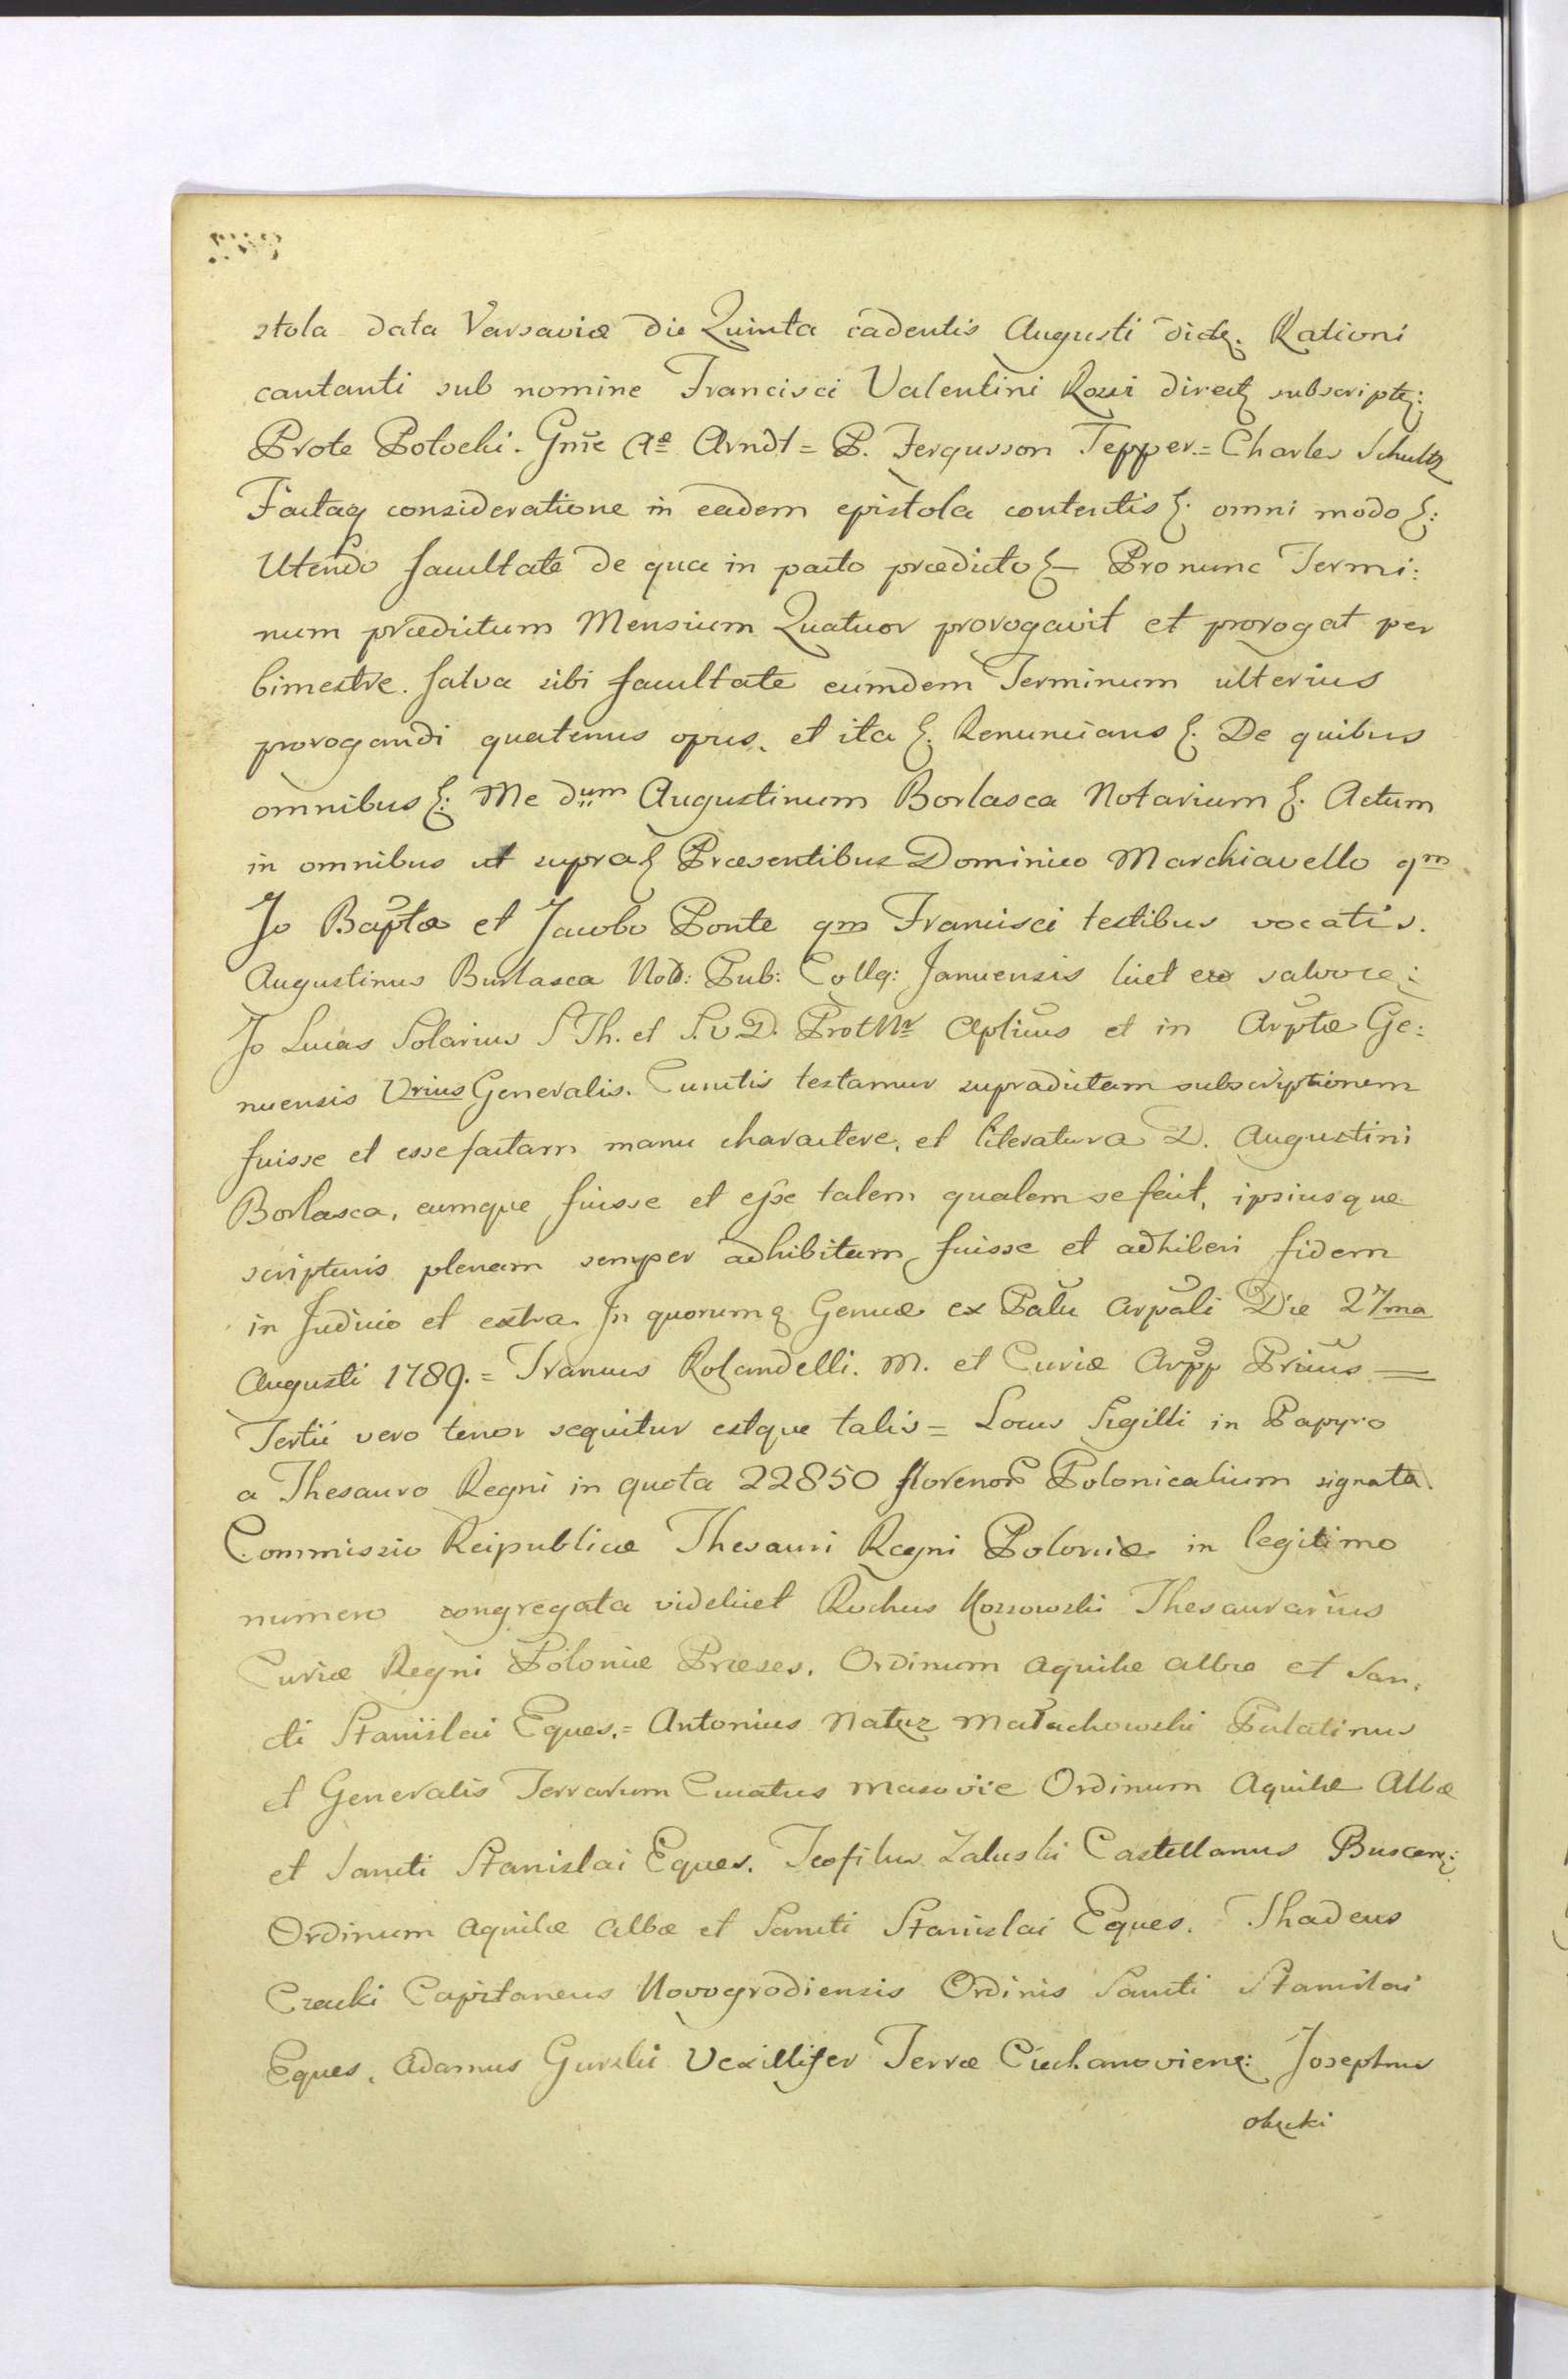 stola data Varsaviæ die Quinta cadentis Augusti dictæ. Rationi
cantanti sub nomine Francisci Valentini Rossi direct subscript:
Prote Potocki. Gñie Aᵉ Arndt = P. Fergusson Tepper. = Charles Schultz
Factaq consideratione in eadem epistola contentis &. omni modo &:
Utendo facultate de qua in pacto prædicto & Pro nunc Termi:
num prædictum Mensium Quatuor prorogavit et prorogat per
bimestre. salva sibi facultate eumdem Terminum ulterius
prorogandi quatenus opus. et ita &. Renuncians &. De quibus
omnibus &: Me dum Augustinum Borlasca Notarium &. Actum
in omnibus ut supra & Præsentibus Dominico Marchiavello qm
Jo Baptæ et Jacobo Ponte qm Francisci testibus vocatis.
Augustinus Burlasca Not: Pub: Collg: Januensis licet
Jo Lucas Solarius S Th. et J. V. D. Prot Nr Aplicus et in Arptæ Ge:
nuensis Vrius Generalis. Cunctis testamur supradictam subscriptionem
fuisse et esse factam manu charactere, et literatura D. Augustini
Borlasca, eumque fuisse et esse talem qualem se facit, ipsiusque
scripturis plenam semper adhibitam fuisse et adhiberi fidem
in Judicio et extra. In quorum & Genuæ ex Palu Arpali Die 27ma
Augusti 1789. = Francus Rolandelli. M. et Curiæ Arpp Prius =
Tertii vero tenor sequitur estque talis = Locus Sigilli in Papyro
a Thesauro Regni in quota 22850 florenor Polonicalium signata.
Commissio Reipublicæ Thesauri Regni Poloniæ in legitimo
numero congregata videlicet Rochus Kossowski Thesaurarius
Curiæ Regni Poloniæ Præses. Ordinum Aquilæ albæ et San:
cti Stanislai Eques. = Antonius Małachowski Palatinus
et Generalis Terrarum Ducatus Masoviæ Ordinum Aquilæ Albæ
et Sancti Stanislai Eques. Teofilus Zaluski Castellanus Buscen:
Ordinum Aquilæ Albæ et Sancti Stanislai Eques. Thadeus
Czacki Capitaneus Novogrodiensis Ordinis Sancti Stanislai
Eques. Adamus Gurski Vexillifer Terræ Ciechanoviens: Josephus